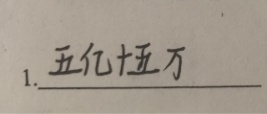 1. 五亿十五万